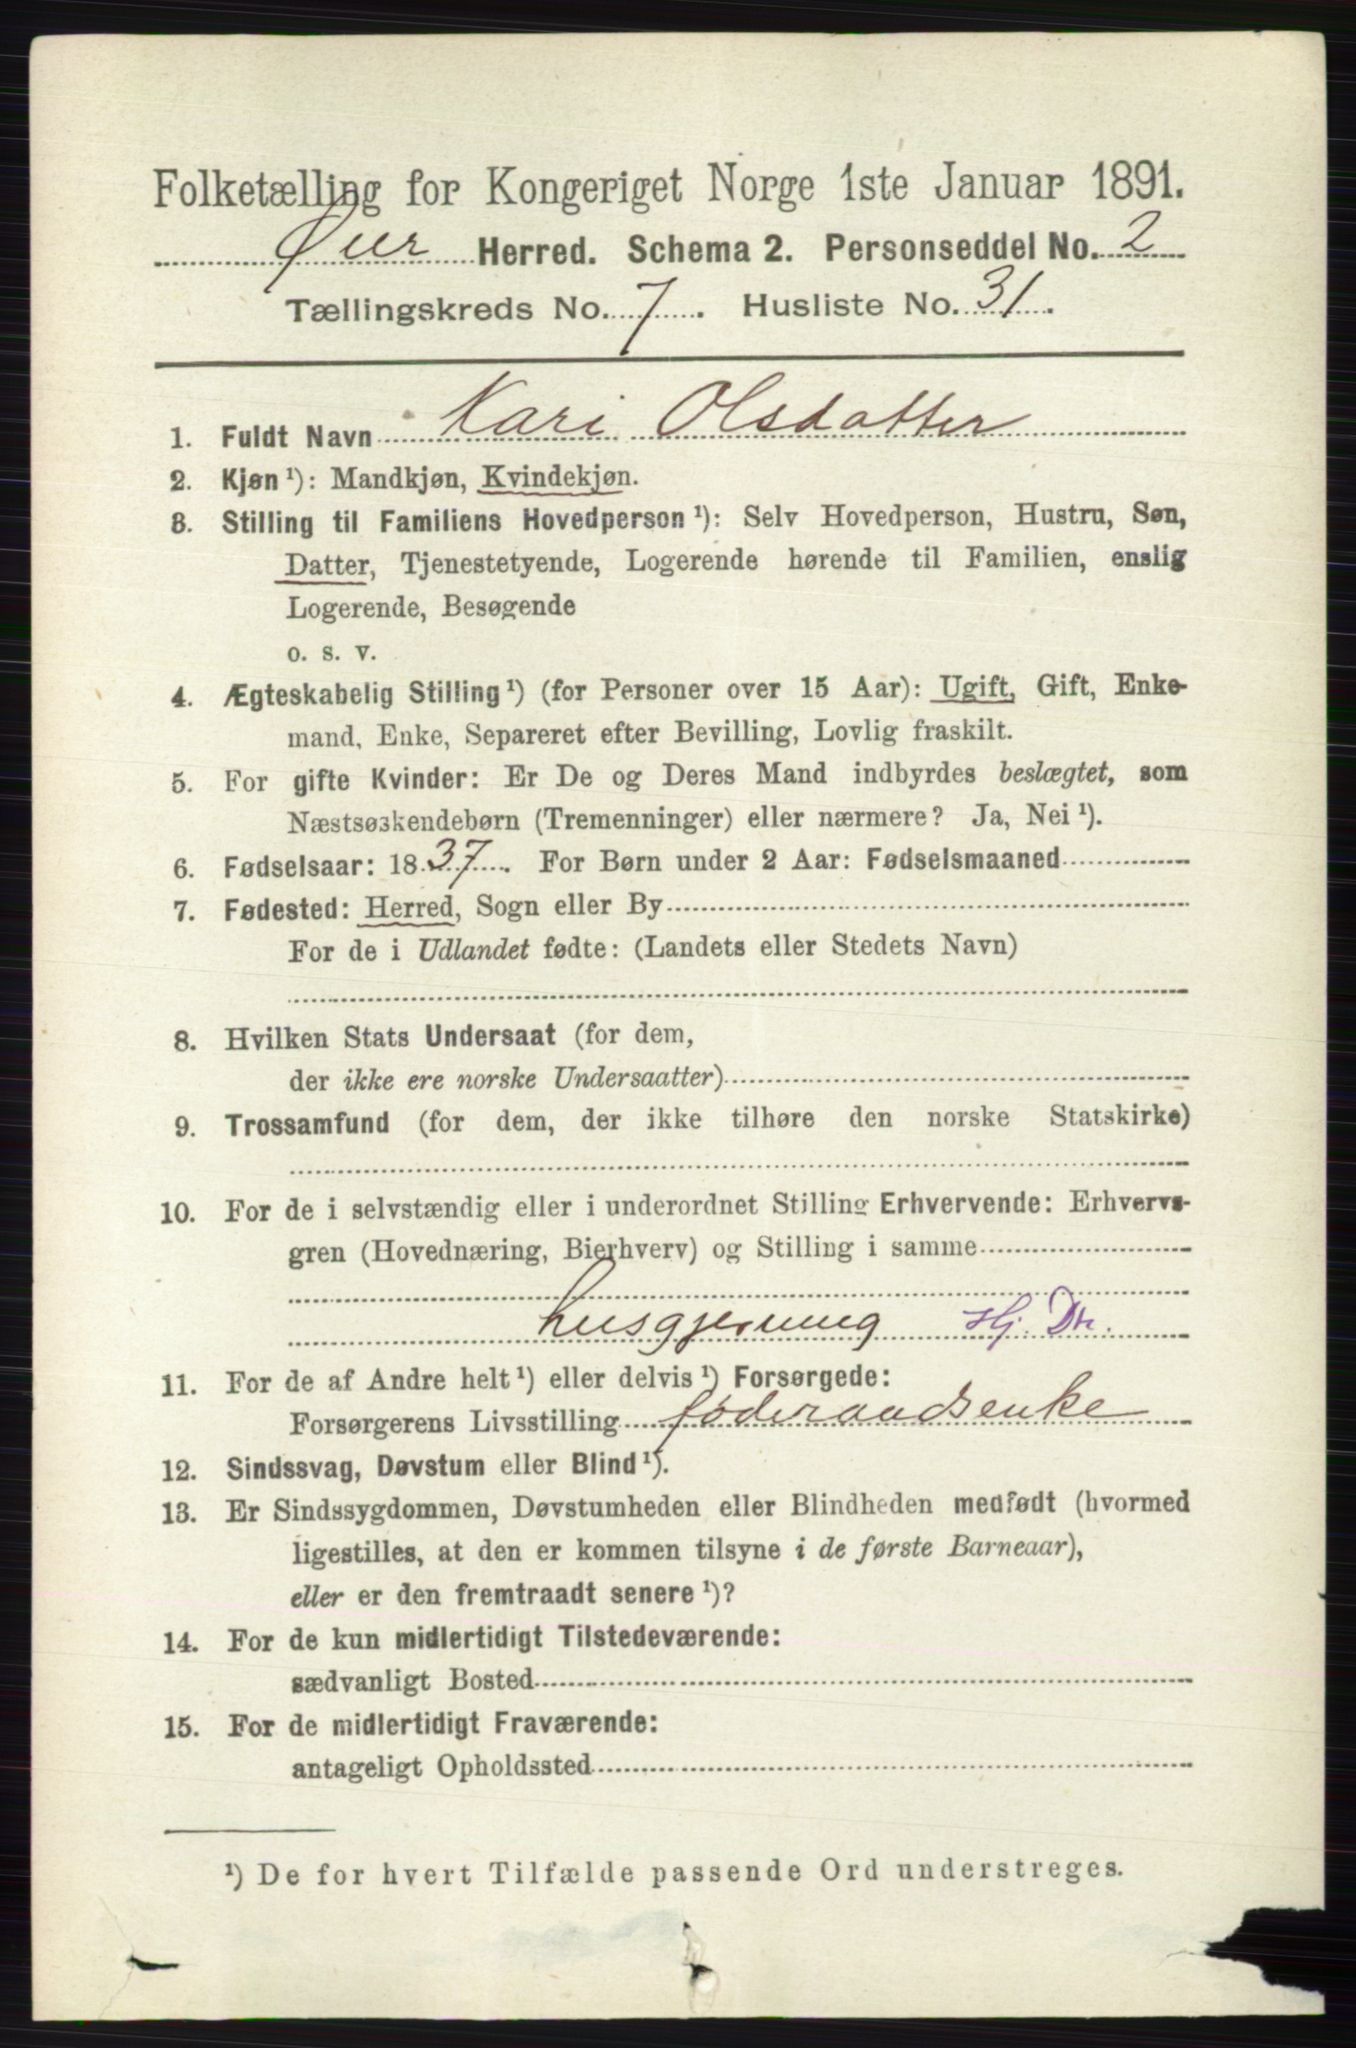 Folketælling for Kongeriget Norge 1ste Januar 1891.
Øier Herred. Schema 2. Personseddel No. 2
Tællingskreds No. 7. Husliste No. 31.
1. Fuldt Navn Kari Olsdatter
2. Kjøn ¹): Mandkjøn, Kvindekjøn.
3. Stilling til Familiens Hovedperson ¹): Selv Hovedperson, Hustru, Søn,
Datter, Tjenestetyende, Logerende hørende til Familien, enslig
Logerende, Besøgende
o. s. v.
4. Ægteskabelig Stilling ¹) (for Personer over 15 Aar): Ugift, Gift, Enke-
mand, Enke, Separeret efter Bevilling, Lovlig fraskilt.
5. For gifte Kvinder: Er De og Deres Mand indbyrdes beslægtet, som
Næstsøskendebørn (Tremenninger) eller nærmere? Ja, Nei ¹).
6. Fødselsaar: 1837. For Børn under 2 Aar: Fødselsmaaned
7. Fødested: Herred, Sogn eller By
For de i Udlandet fødte: (Landets eller Stedets Navn)
8. Hvilken Stats Undersaat (for dem,
der ikke ere norske Undersaatter)
9. Trossamfund (for dem, der ikke tilhøre den norske Statskirke)
10. For de i selvstændig eller i underordnet Stilling Erhvervende: Erhvervs-
gren (Hovednæring, Bierhverv) og Stilling i samme
husgjerning Hj. Dtr.
11. For de af Andre helt ¹) eller delvis ¹) Forsørgede:
Forsørgerens Livsstilling føderaadsenke
12. Sindssvag, Døvstum eller Blind ¹).
13. Er Sindssygdommen, Døvstumheden eller Blindheden medfødt (hvormed
ligestilles, at den er kommen tilsyne i de første Barneaar),
eller er den fremtraadt senere ¹)?
14. For de kun midlertidigt Tilstedeværende:
sædvanligt Bosted
15. For de midlertidigt Fraværende:
antageligt Opholdssted
¹) De for hvert Tilfælde passende Ord understreges.